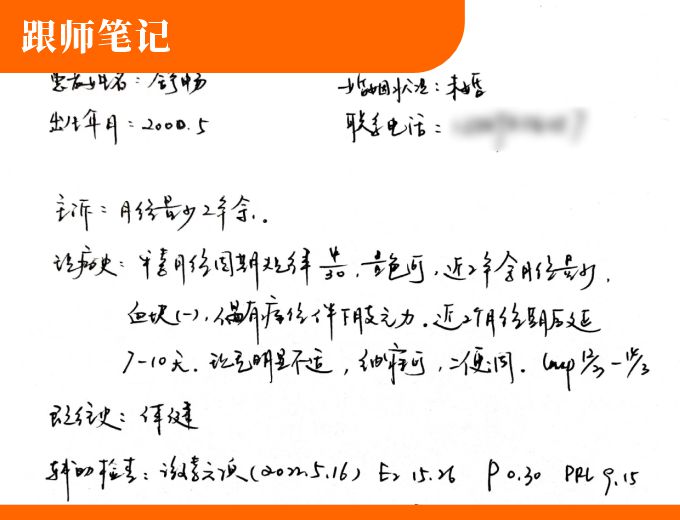 跟师笔记
患者姓名：舒畅 婚姻状况：未婚
出生年月：2000.5 联系电话：
主诉：月经量少2年余.
现病史：平素月经周期规律 4/30，量色可，近2年余月经量少，
血块(-)，偶有痛经伴下肢乏力．近2个月经期后延
7-10天．现无明显不适，纳寐可，二便调． Lmp 12/3-15/3
既往史：体健
辅助检查： (2022.5.16) E2 15.26 P 0.30 PRL 9.15